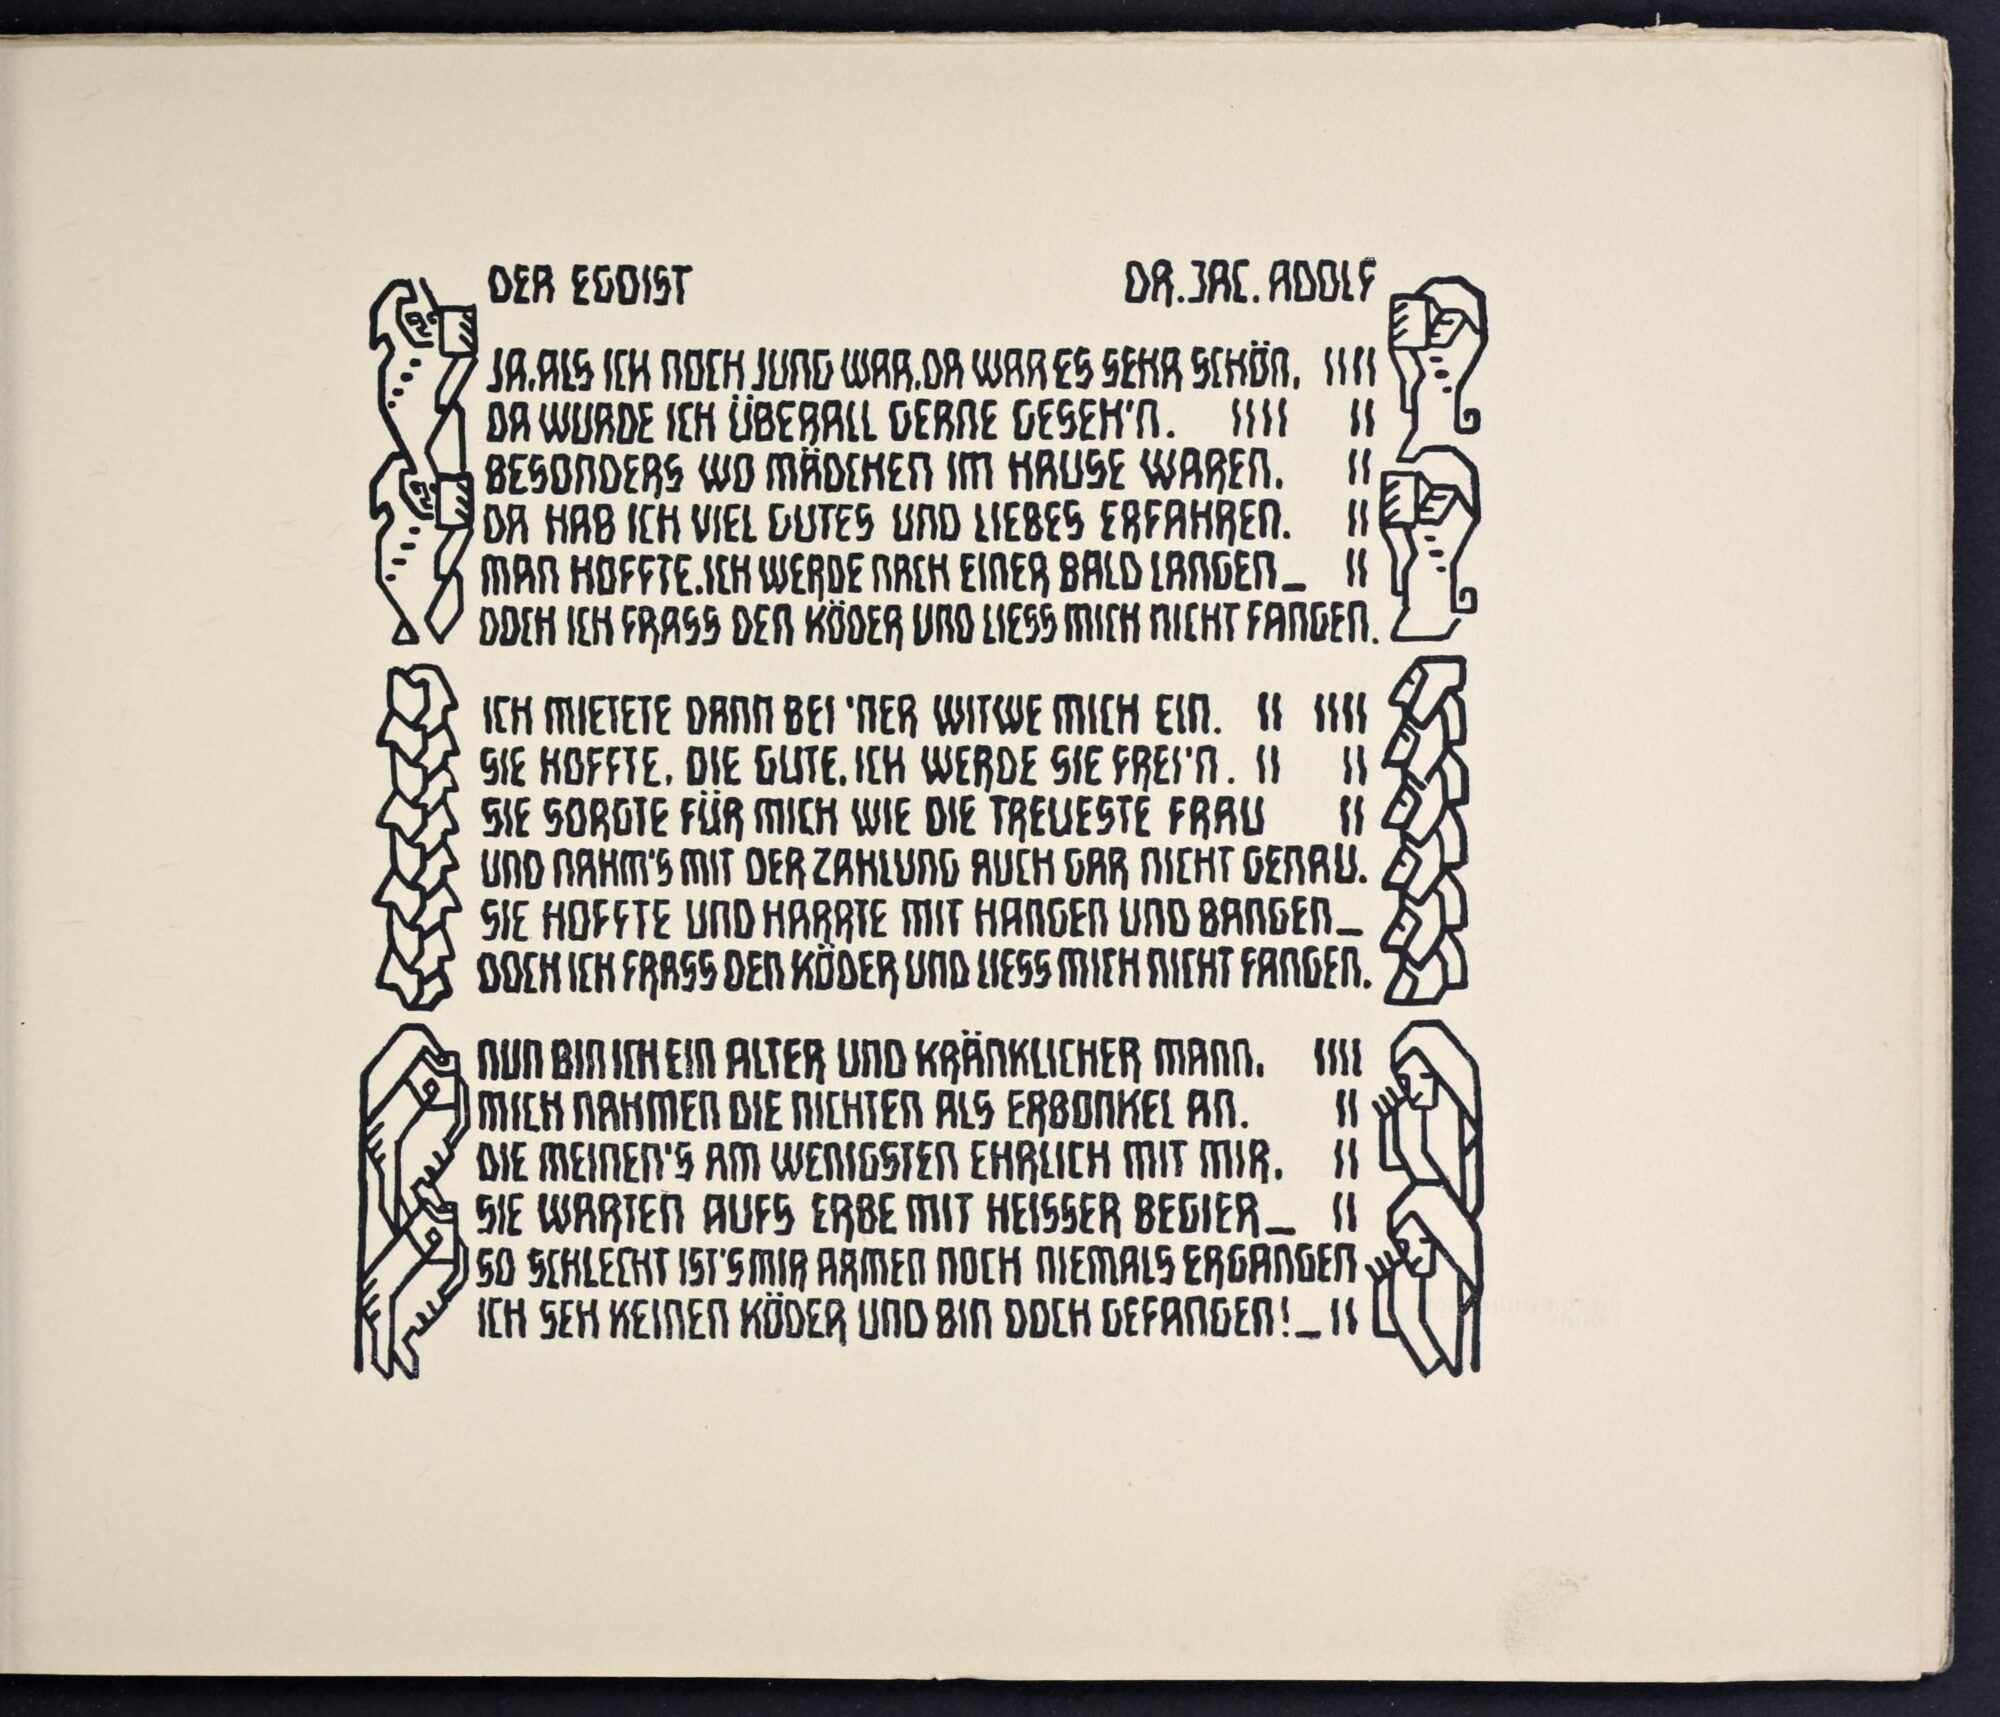 DER EGOIST DR. JAC. ADOLF
JA, ALS ICH NOCH JUNG WAR, DA WAR ES SEHR SCHÖN,
DA WURDE ICH ÜBERALL GERNE GESEH'N.
BESONDERS WO MÄDCHEN IM HAUSE WAREN,
DA HAB ICH VIEL GUTES UND LIEBES ERFAHREN.
MAN HOFFTE, ICH WERDE NACH EINER BALD LANGEN_
DOCH ICH FRASS DEN KÖDER UND LIESS MICH NICHT FANGEN.
ICH MIETETE DANN BEI 'NER WITWE MICH EIN.
SIE HOFFTE, DIE GUTE, ICH WERDE SIE FREI'N.
SIE SORGTE FÜR MICH WIE DIE TREUESTE FRAU
UND NAHM'S MIT DER ZAHLUNG AUCH GAR NICHT GENAU.
SIE HOFFTE UND HARRTE MIT HANGEN UND BANGEN_
DOCH ICH FRASS DEN KÖDER UND LIESS MICH NICHT FANGEN.
NUN BIN ICH EIN ALTER UND KRÄNKLICHER MANN,
MICH NAHMEN DIE NICHTEN ALS ERBONKEL AN.
DIE MEINEN'S AM WENIGSTEN EHRLICH MIT MIR,
SIE WARTEN AUFS ERBE MIT HEISSER BEGIER_
SO SCHLECHT IST'S MIR ARMEN NOCH NIEMALS ERGANGEN
ICH SEH KEINEN KÖDER UND BIN DOCH GEFANGEN!_